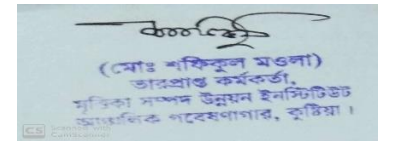 (মোঃ শফিকুল মওলা)
ভারপ্রাপ্ত কর্মকর্তা,
মৃত্তিকা সম্পদ উন্নয়ন ইনস্টিটিউট
আঞ্চলিক গবেষণাগার, কুষ্টিয়া।
CS Scanned with
CamScanner